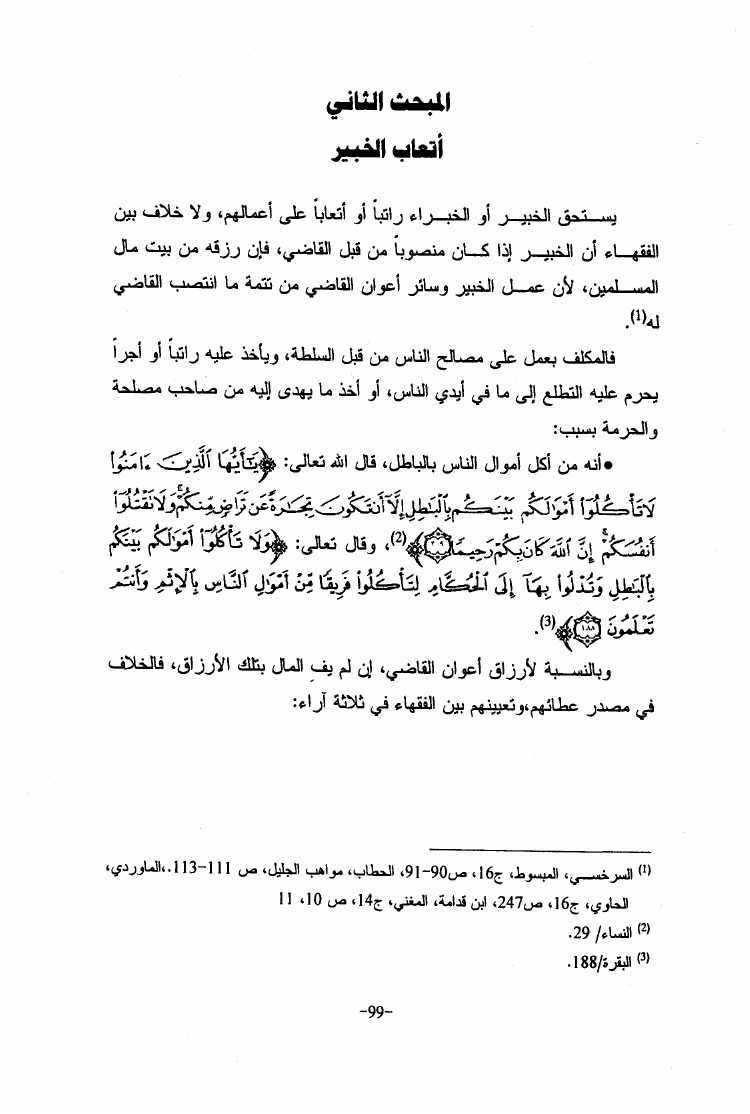 المبحث الثاني
أتعاب الخبير
يستحق الخبير أو الخبراء راتباً أو أتعاباً على أعمالهم، ولا خلاف بين
الفقهاء أن الخبير إذا كان منصوباً من قبل القاضي، فإن رزقه من بيت مال
المسلمين، لأن عمل الخبير وسائر أعوان القاضي من تتمة ما انتصب القاضي
له(1).
فالمكلف بعمل على مصالح الناس من قبل السلطة، ويأخذ عليه راتباً أو أجراً
يحرم عليه التطلع إلى ما في أيدي الناس، أو أخذ ما يهدى إليه من صاحب مصلحة
والحرمة بسبب:
•أنه من أكل أموال الناس بالباطل، قال الله تعالى: ﴿يَٰٓأَيُّهَا ٱلَّذِينَ ءَامَنُوا۟
لَا تَأْكُلُوٓا۟ أَمْوَٰلَكُم بَيْنَكُم بِٱلْبَٰطِلِ إِلَّآ أَن تَكُونَ تِجَٰرَةً عَن تَرَاضٍ مِّنكُمْ ۚ وَلَا تَقْتُلُوٓا۟
أَنفُسَكُمْ ۚ إِنَّ ٱللَّهَ كَانَ بِكُمْ رَحِيمًا ٢٩﴾(2)، وقال تعالى: ﴿وَلَا تَأْكُلُوٓا۟ أَمْوَٰلَكُم بَيْنَكُم
بِٱلْبَٰطِلِ وَتُدْلُوا۟ بِهَآ إِلَى ٱلْحُكَّامِ لِتَأْكُلُوا۟ فَرِيقًا مِّنْ أَمْوَٰلِ ٱلنَّاسِ بِٱلْإِثْمِ وَأَنتُمْ
تَعْلَمُونَ ١٨٨﴾(3).
وبالنسبة لأرزاق أعوان القاضي، إن لم يف المال بتلك الأرزاق، فالخلاف
في مصدر عطائهم،وتعيينهم بين الفقهاء في ثلاثة آراء:
(1) السرخسي، المبسوط، ج16، ص90-91، الحطاب، مواهب الجليل، ص 111-113.،الماوردي،
الحاوي، ج16، ص247، ابن قدامة، المغني، ج14، ص 10، 11
(2) النساء/ 29.
(3) البقرة/188.
-99-